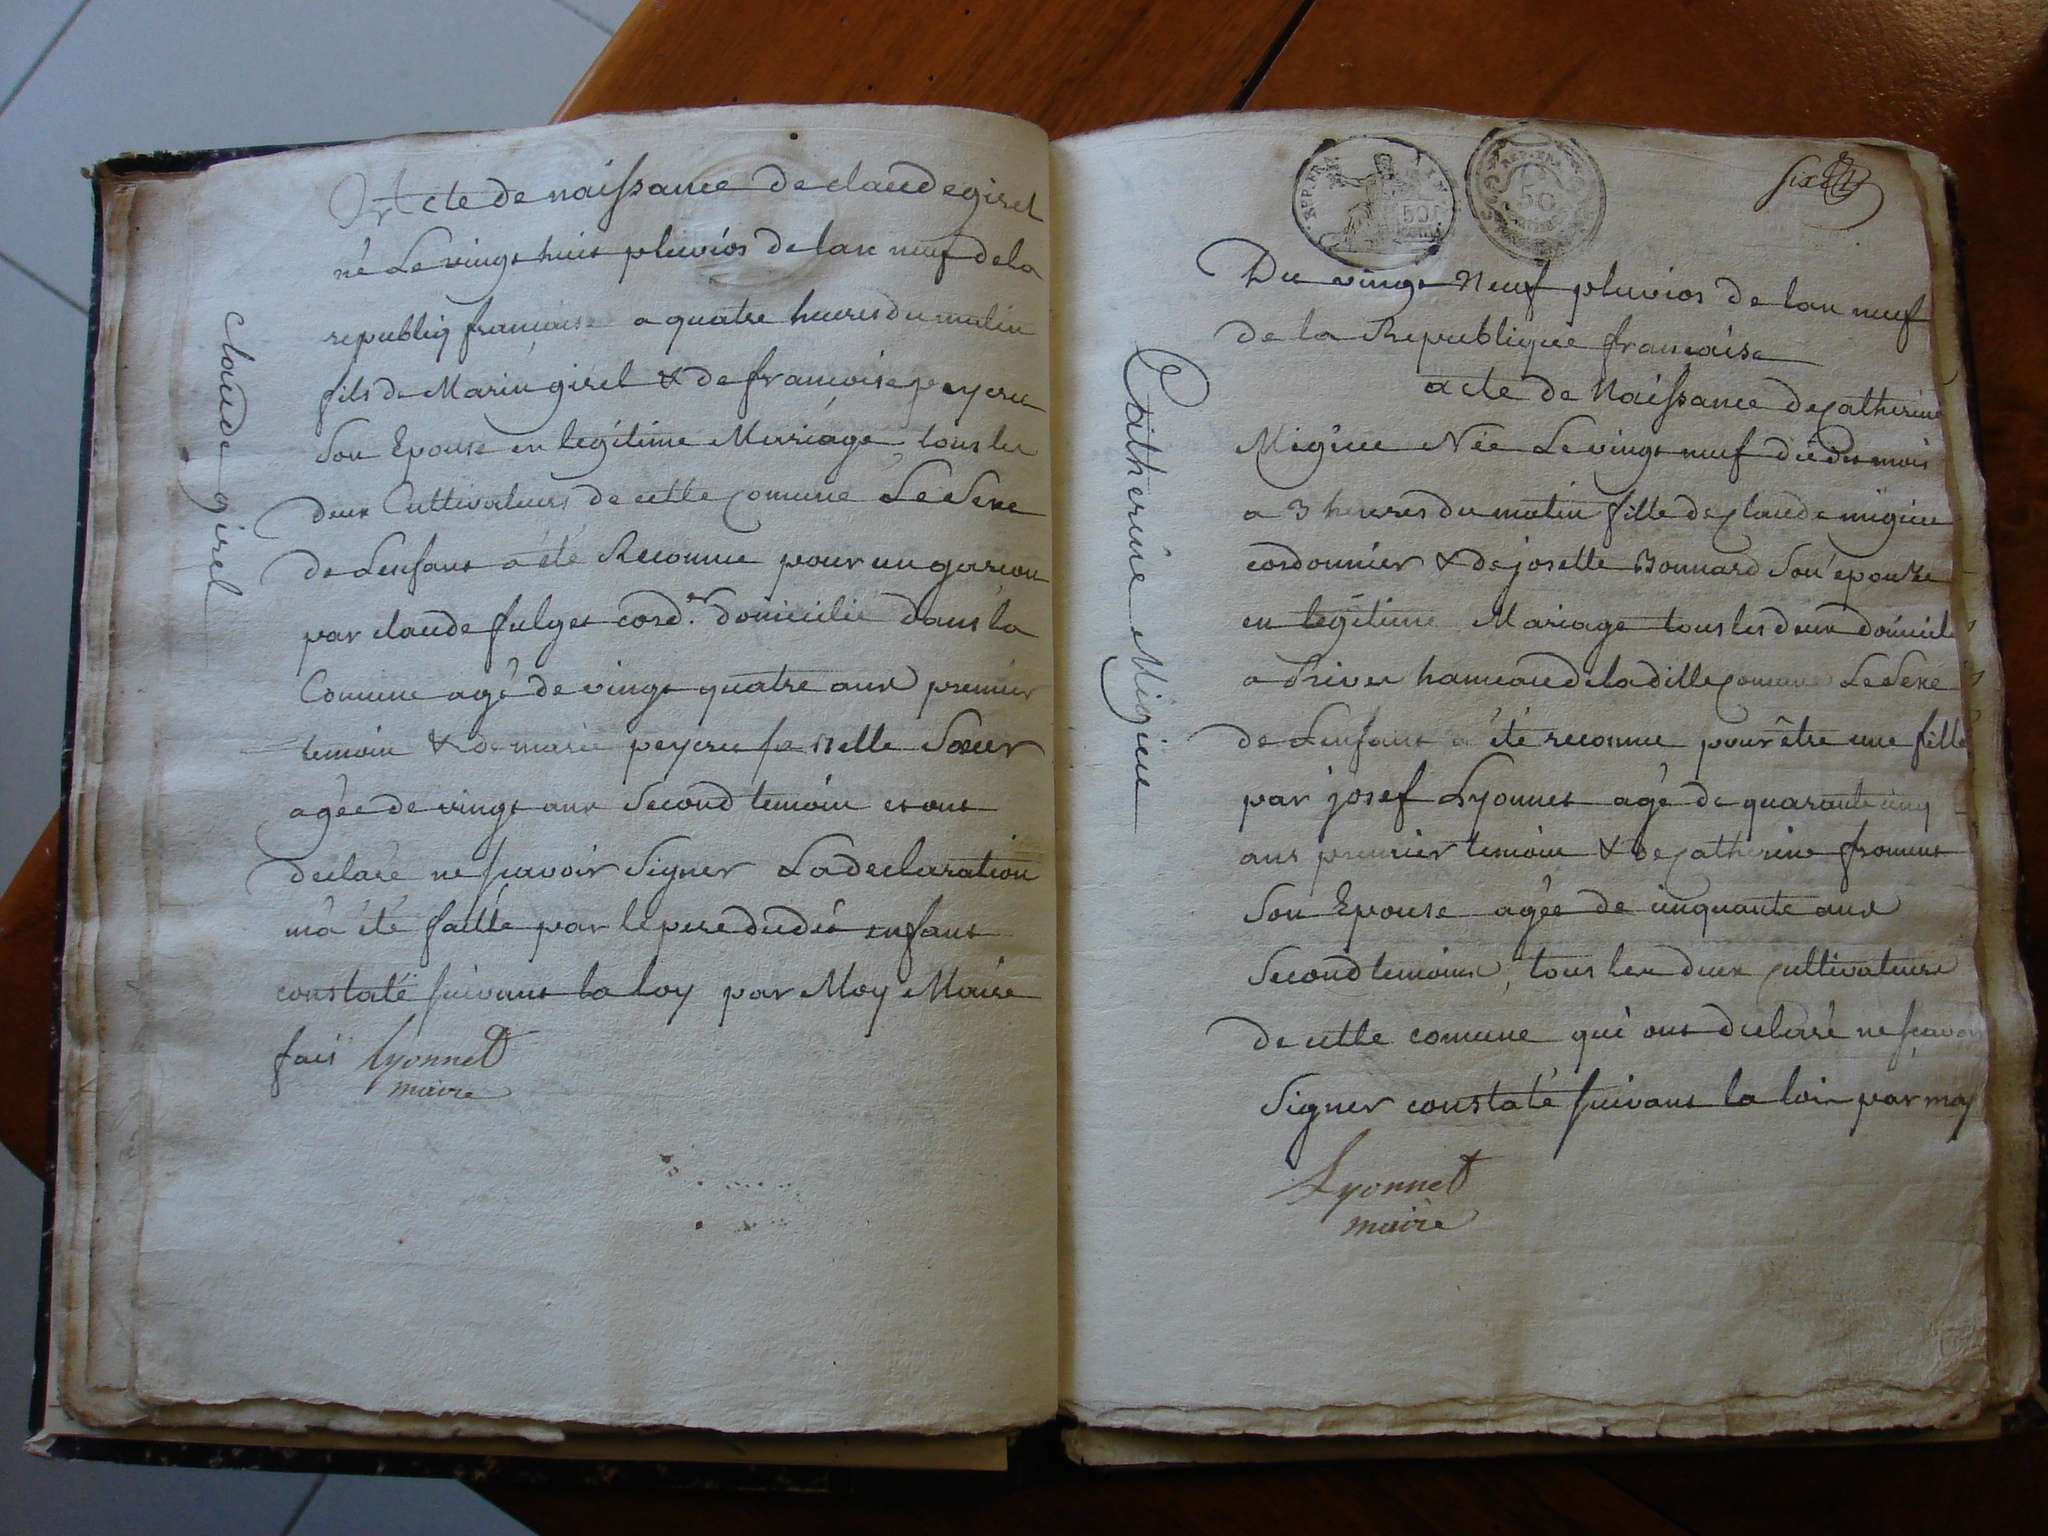 claude girel
Acte de naissance de claude girel
né Le vingt huit pluvios de lan neuf de la
republiq francaise a quatre heures du matin
fils de Marin girel & de francoise peycru
Son Epouse en legitime Mariage tous les
deux Cultivateurs de cette comune Le Sexe
de Lenfant a été Reconnue pour un garcon
par claude fulget cord.er domicilié dans la
Comune agé de vingt quatre ans premier
temoin & de marie peycru sa belle Sœur
agée de vingt ans Second temoin et ont
declaré ne scavoir Signer La declaration
m'a été faitte par le pere dudit enfant
constaté suivant la loy par Moy Maire
fait Lyonnet
maire
REP. FRA.
50
REP. FRA.
50
six
Catherine Migieu
Du vingt Neuf pluvios de lan neuf
de la Republique francaise
acte de Naissance de Catherine
Migieu Née Le vingt neuf dit du mois
a 3 heures du matin fille de Claude migieu
cordonnier & de josette Bonnard Son epouze
en legitime Mariage tous les deux domicil
a hameau de la ditte Comune Le Sexe
de Lenfant a été reconnue pour être une fille
par josef Lyonnet agé de quarante cinq
ans premier temoin & de Catherine froment
Son Epouse agée de cinquante ans
Second temoins, tous les deux Cultivateurs
de cette comune qui ont declaré ne scavoir
Signer constaté suivant la loi par moy
Lyonnet
maire